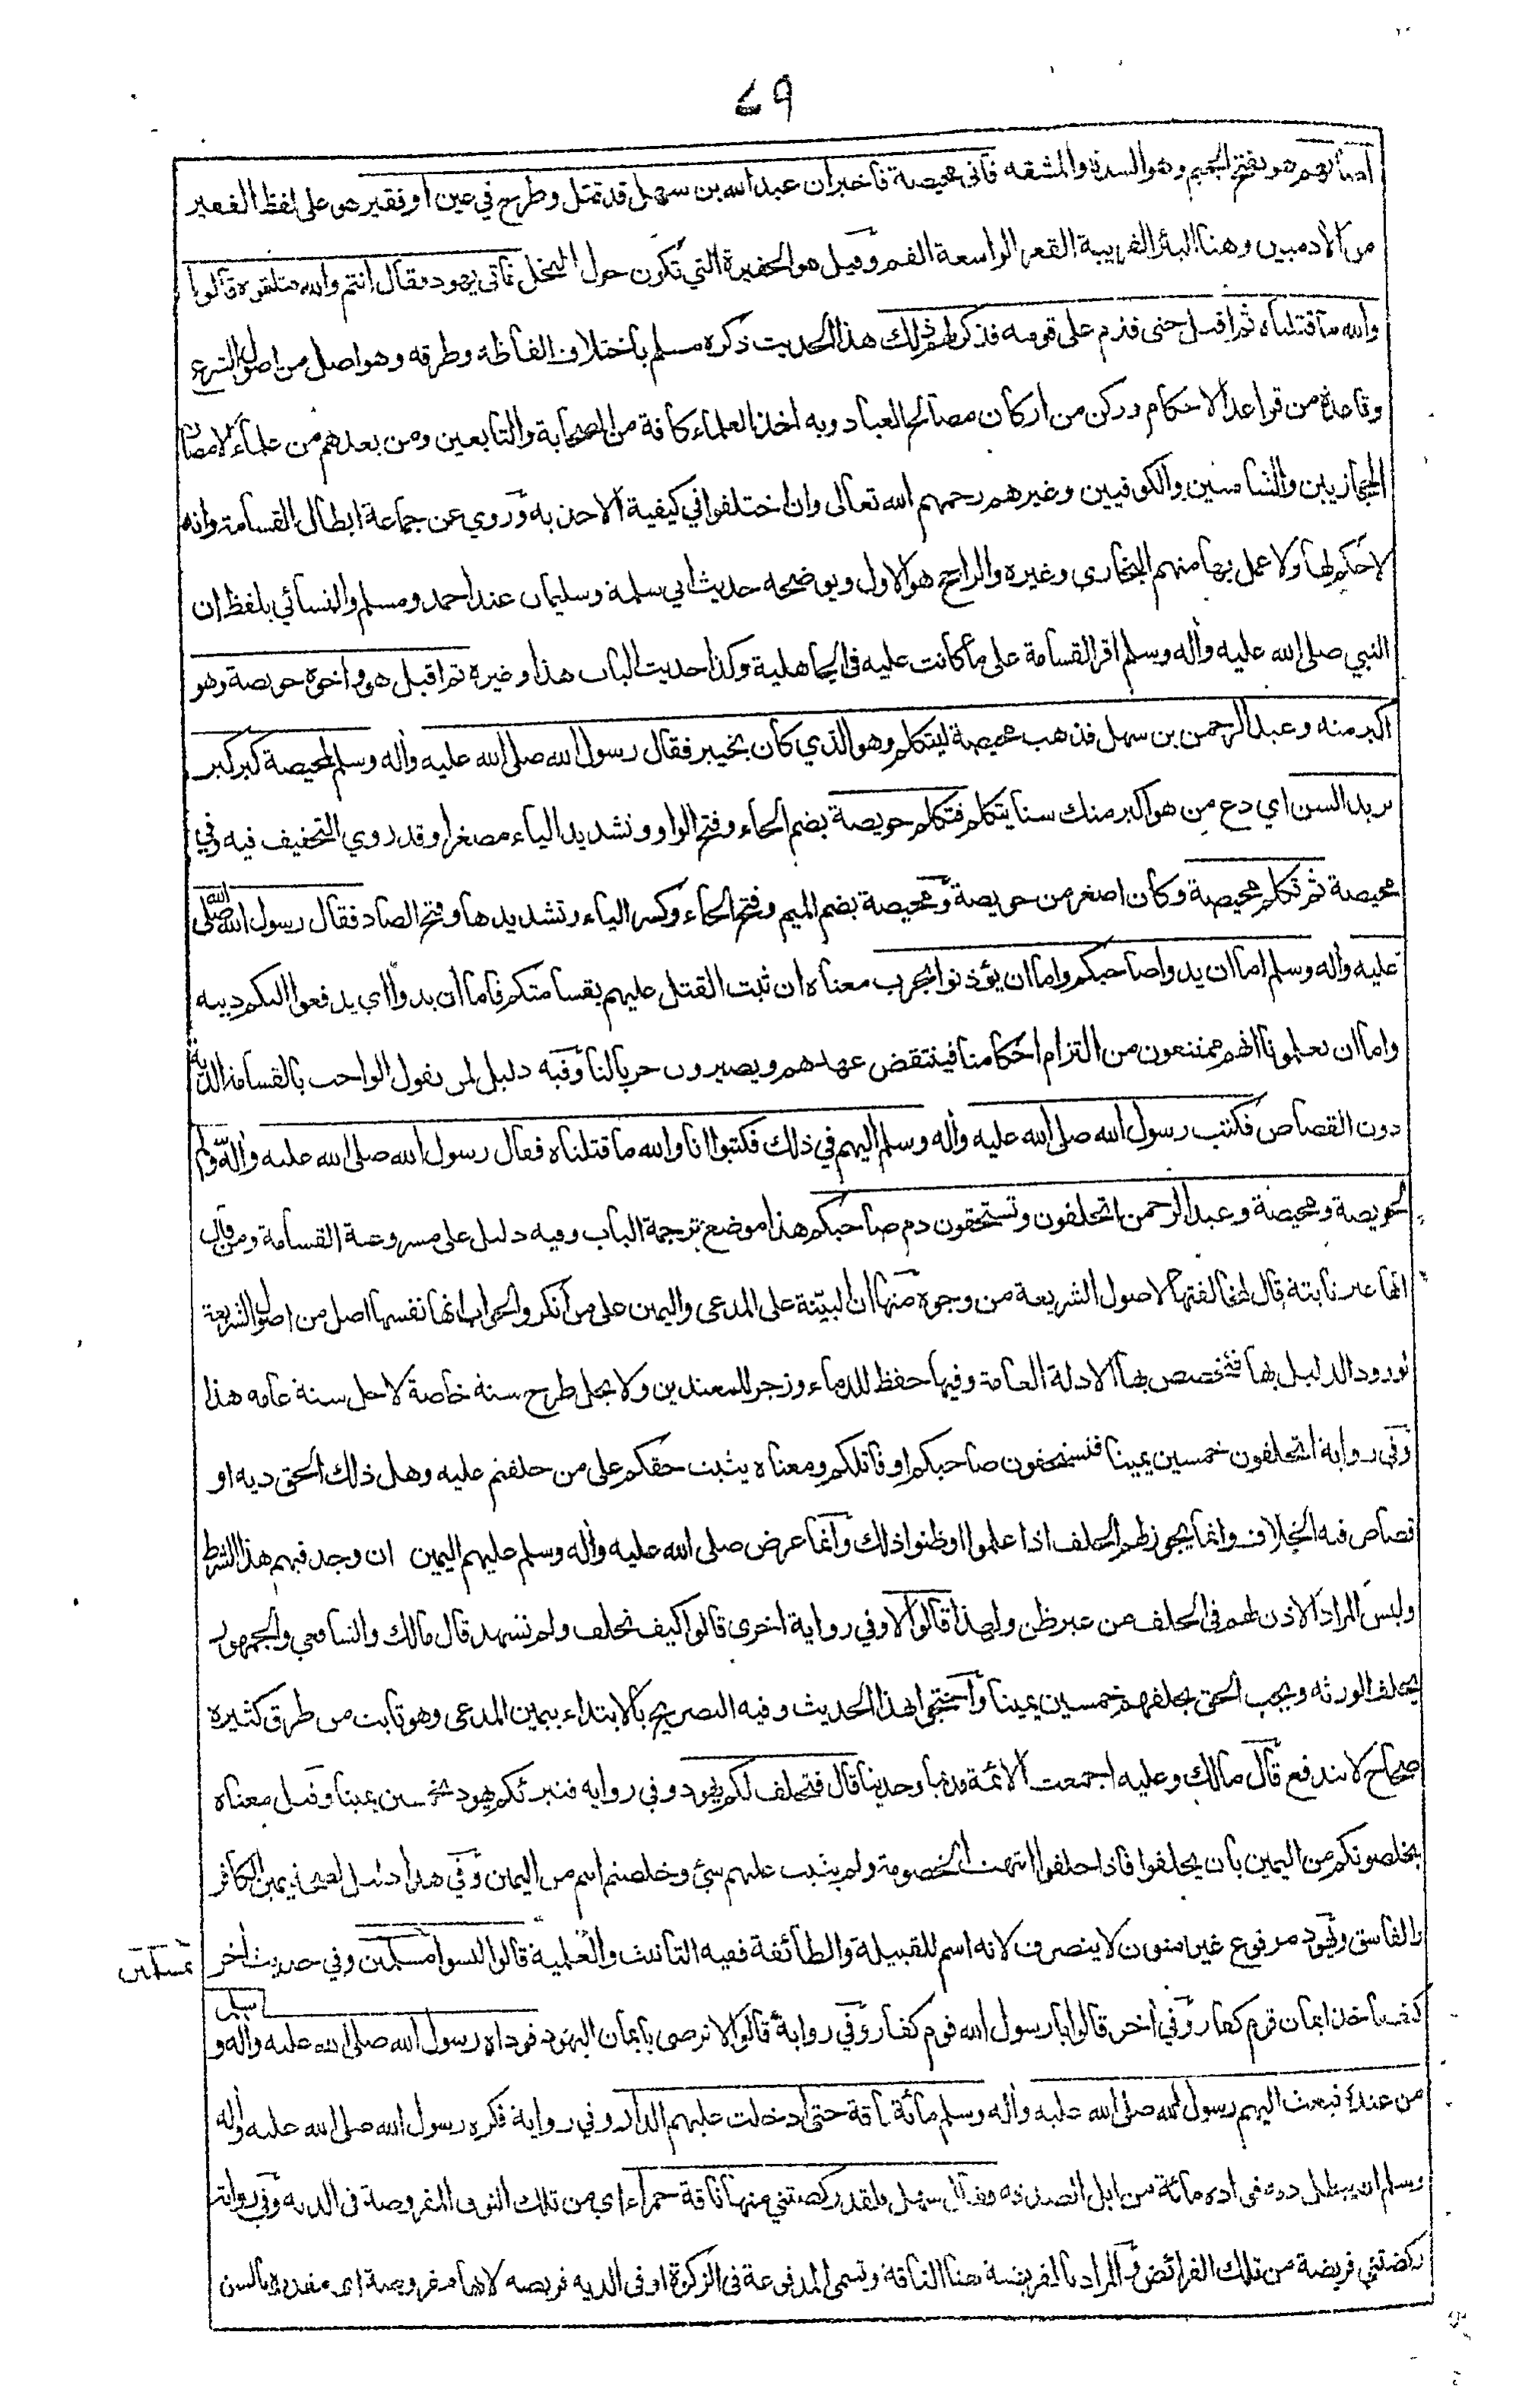 ٤٩
اصابهم هو بفتح الجيم وهو الشدة والمشقة فاتى محيصة فاخبر ان عبد الله بن سهل قد قتل وطرح في عين او فقير هو على لفظ الفقير
من الآدميين وهنا البئر القريبة القعر الواسعة الفم وقيل هو الحفيرة التي تكون حول النخل فاتى يهود فقال انتم والله قتلتموه قالوا
والله ما قتلناه ثم اقبل حتى قدم على قومه فذكر لهم ذلك هذا الحديث ذكره مسلم باختلاف الفاظه وطرقه وهو اصل من اصول الشرع
وقاعدة من قواعد الاحكام وركن من اركان مصالح العباد وبه اخذ العلماء كافة من الصحابة والتابعين ومن بعدهم من علماء الامصار
الحجازيين والشاميين والكوفيين وغيرهم رحمهم الله تعالى وان اختلفوا في كيفية الاخذ به وروي عن جماعة ابطال القسامة وانه
لا حكم لها ولا عمل بها منهم البخاري وغيره والراجح هو الاول ويوضحه حديث ابي سلمة وسليمان عند احمد ومسلم والنسائي بلفظ ان
النبي صلى الله عليه وآله وسلم اقر القسامة على ما كانت عليه في الجاهلية وكذا حديث الباب هذا وغيره ثم اقبل هو واخوه حويصة وهو
اكبر منه وعبد الرحمن بن سهل فذهب محيصة ليتكلم وهو الذي كان بخيبر فقال رسول الله صلى الله عليه وآله وسلم لمحيصة كبر كبر
يريد السن اي دع من هو اكبر منك سنا يتكلم فتكلم حويصة بضم الحاء وفتح الواو وتشديد الياء مصغرا وقد روي التخفيف فيه وفي
محيصة ثم تكلم محيصة وكان اصغر من حويصة ومحيصة بضم الميم وفتح الحاء وكسر الياء وتشديدها وفتح الصاد فقال رسول الله صلى الله
عليه وآله وسلم اما ان يدوا صاحبكم واما ان يؤذنوا بحرب معناه ان ثبت القتل عليهم بقسامتكم فاما ان يدوا اي يدفعوا اليكم ديته
واما ان يعلمونا انهم ممتنعون من التزام احكامنا فينتقض عهدهم ويصيرون حربا لنا وفيه دليل لمن يقول الواجب بالقسامة الدية
دون القصاص فكتب رسول الله صلى الله عليه وآله وسلم اليهم في ذلك فكتبوا انا والله ما قتلناه فقال رسول الله صلى الله عليه وآله وسلم
لحويصة ومحيصة وعبد الرحمن اتحلفون وتستحقون دم صاحبكم هذا موضع ترجمة الباب وفيه دليل على مشروعية القسامة ومن قال
انها غير ثابتة قال لمخالفتها لاصول الشريعة من وجوه منها ان البينة على المدعي واليمين على من انكر والجواب انها نفسها اصل من اصول الشريعة
لورود الدليل بها فتخصص بها الادلة العامة وفيها حفظ للدماء وزجر للمعتدين ولا يحل طرح سنة خاصة لاجل سنة عامة هذا
وفي رواية اتحلفون خمسين يمينا فتستحقون صاحبكم او قاتلكم ومعناه يثبت حقكم على من حلفتم عليه وهل ذلك الحق دية او
قصاص فيه الخلاف وانما يجوز لهم الحلف اذا علموا او ظنوا ذلك وانما عرض صلى الله عليه وآله وسلم عليهم اليمين ان وجد فيهم هذا الشرط
وليس المراد الاذن لهم في الحلف من غير ظن ولهذا قالوا لا وفي رواية اخرى قالوا كيف نحلف ولم نشهد قال مالك والشافعي والجمهور
يحلف الورثة ويجب الحق بحلفهم خمسين يمينا واحتجوا بهذا الحديث وفيه التصريح بالابتداء بيمين المدعي وهو ثابت من طرق كثيرة
صحاح لا تندفع قال مالك وعليه اجمعت الائمة قديما وحديثا قال فتحلف لكم يهود وفي رواية فتبرئكم يهود بخمسين يمينا وقيل معناه
يخلصونكم من اليمين بان يحلفوا فاذا حلفوا انتهت الخصومة ولم يثبت عليهم شيء وخلصتم انتم من اليمين وفي هذا دليل لصحة يمين الكافر
والفاسق ويهود مرفوع غير منون لا ينصرف لانه اسم للقبيلة والطائفة ففيه التانيث والعلمية قالوا ليسوا مسلمين وفي حديث آخر
بمسلمين
كيف ناخذ ايمان قوم كفار وفي آخر قالوا يا رسول الله قوم كفار وفي رواية قالوا لا نرضى بايمان اليهود فوداه رسول الله صلى الله عليه وآله وسلم
من عنده فبعث اليهم رسول الله صلى الله عليه وآله وسلم مائة ناقة حتى ادخلت عليهم الدار وفي رواية فكره رسول الله صلى الله عليه وآله
وسلم ان يبطل دمه فوداه مائة من ابل الصدقة فقال سهل ولقد ركضتني منها ناقة حمراء اي من تلك النوق المفروضة في الدية وفي رواية
ركضتني فريضة من تلك الفرائض والمراد بالفريضة هنا الناقة وتسمى المدفوعة في الزكوة او في الدية فريضة لانها مفروضة اي مقدرة بالسن